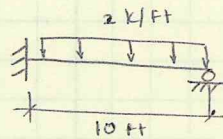 2 K/Ft
10 Ft